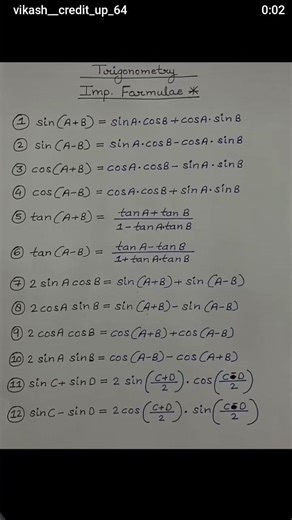 vikash__credit_up_64
0:02
Trigonometry
Imp. Farmulae *
① sin(A+B) = sinA·cosB+cosA·sinB
② sin(A-B) = sinA·cosB-cosA·sinB
③ cos(A+B) = cosA·cosB-sinA·sinB
④ cos(A-B) = cosA·cosB+sinA·sinB
⑤ tan(A+B) = tanA+tanB / 1-tanAtanB
⑥ tan(A-B) = tanA-tanB / 1+tanAtanB
⑦ 2 sinA cosB = sin(A+B)+sin(A-B)
⑧ 2 cosA sinB = sin(A+B)-sin(A-B)
⑨ 2 cosA cosB = cos(A+B)+cos(A-B)
⑩ 2 sinA sinB = cos(A-B)-cos(A+B)
⑪ sinC+sinD = 2 sin(C+D/2)·cos(C-D/2)
⑫ sinC-sinD = 2cos(C+D/2)·sin(C-D/2)